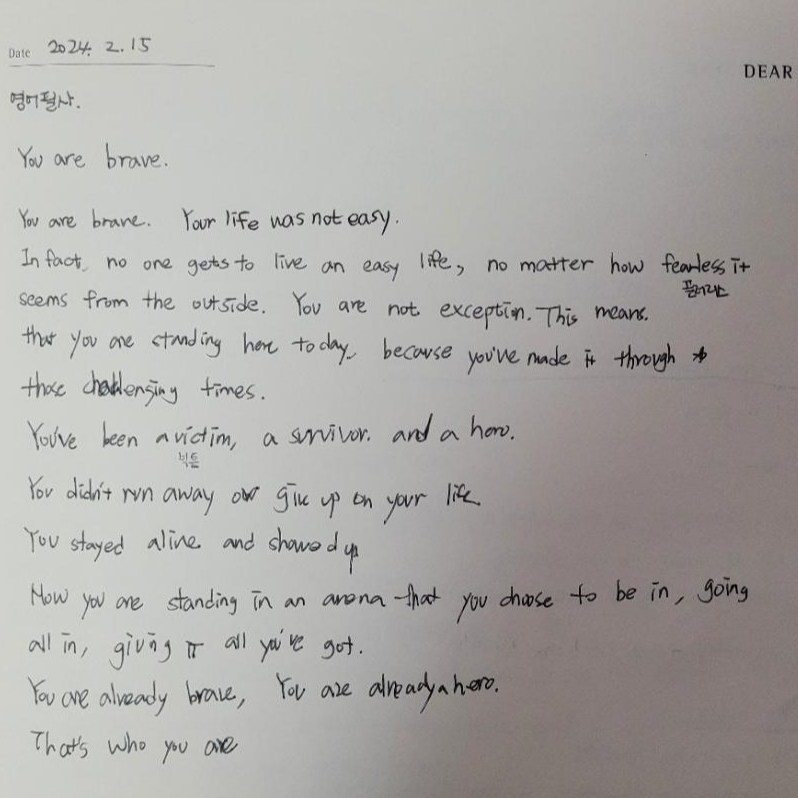 Date 2024. 2. 15
DEAR
영어필사.
You are brave.
You are brave. Your life was not easy.
In fact, no one gets to live an easy life, no matter how fearless it
피어리스
seems from the outside. You are not exception. This means.
that you are standing here today, because you've made it through
those challenging times.
You've been a victim, a survivor. and a hero.
빅틈
You didn't run away or give up on your life
You stayed alive and showed up
Now you are standing in an arena that you choose to be in, going
all in, giving it all you've got.
You are already brave, You are already a hero.
That's who you are